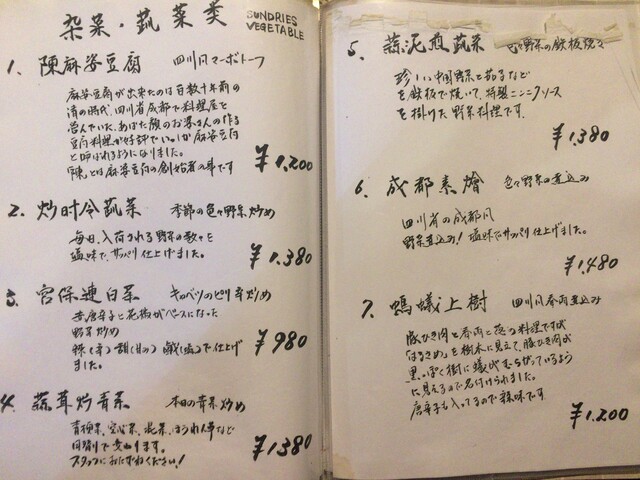 杂菜・蔬菜类
SUNDRIES
VEGETABLE
1. 陳麻婆豆腐 四川风マーボトーフ
麻婆豆腐が出来たのは百数十年前の
清の時代、四川省成都で料理屋を
営んでいた、あばた顔のお婆さんの作る
豆腐料理が好評でいつしか麻婆豆腐
と呼ばれるようになりました。
「陳」とは麻婆豆腐の創始者の事です
¥1,200
2. 炒时令蔬菜 季節の色々野菜炒め
毎日、入荷される野菜の数々を
塩味で、サッパリ仕上げました。
¥1,380
3. 宮保連白菜 キャベツのピリ辛炒め
唐辛子と花椒がベースになった
野菜炒め
辣(辛) 甜(甘い) 鹹(塩)で仕上げ
ました。
¥980
4. 蔬茸炒青菜 本日の青菜炒め
青梗菜、空心菜、ほうれん草など
日替りで変わります。
スタッフにおたずねください!
¥1380
5. 蒜泥煎蔬菜 色々野菜の鉄板焼き
珍しい中国野菜と茄子など
を鉄板で焼いて、特製ニンニクソース
を掛けた野菜料理です。
¥1,380
6. 成都素燴 色々野菜の煮込み
四川省の成都风
野菜煮込み! 塩味でサッパリ仕上げました。
¥1,480
7. 螞蟻上樹 四川风春雨煮込み
豚ひき肉と春雨と
「はるさめ」を樹木に見立て、豚ひき肉が
黒っぽく樹に蟻がむらがっているよう
に見えるので名付けられました。
唐辛子も入ってるので辣味です
¥1,200